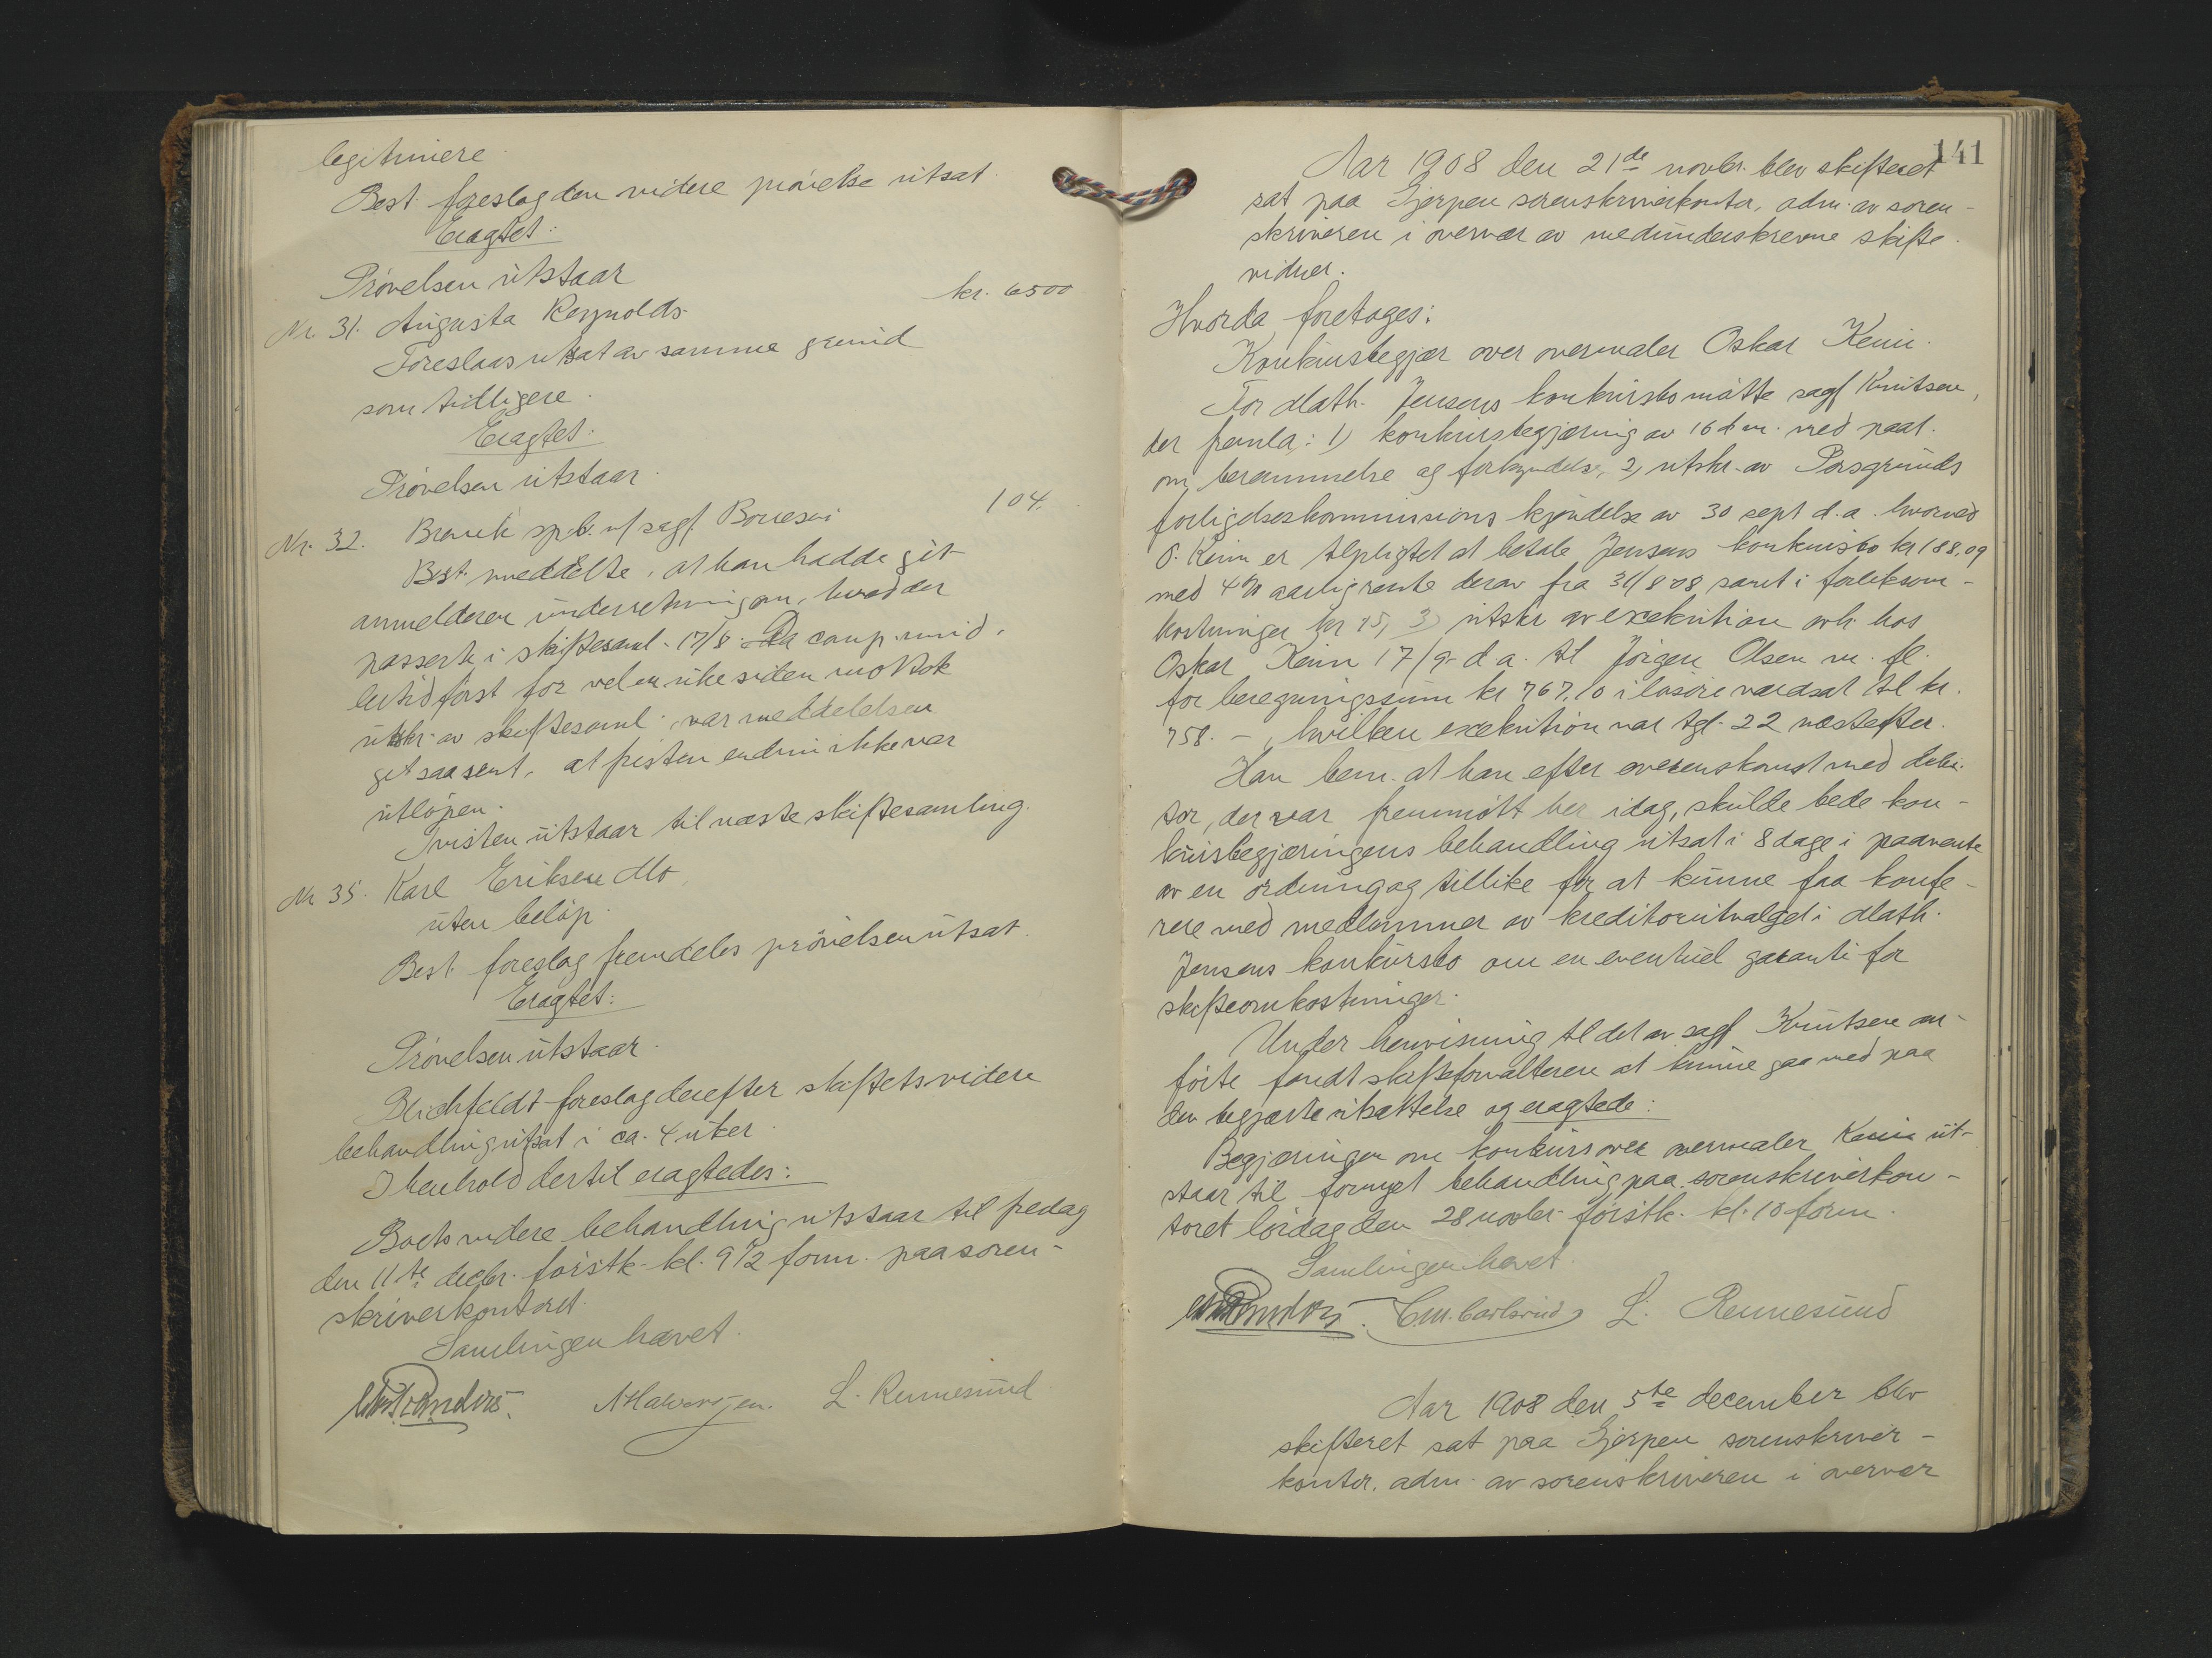 legitimere
Best. foreslog den videre prövelse utsat.
Eragtet:
Prövelsen utstaar
Nr. 31. Augusta Reynolds kr. 6500
Foreslaas utsat av samme grund
som tidligere.
Eragtet:
Prövelsen utstaar.
Nr. 32. Brevik spb. v/ sagf. Borresen 104.
Best. meddelte, at han hadde git
anmelderen underretning om, hvad der
passerte i skiftesaml. 17/8. Da comp. imid-
lertid först for vel en uke siden mottok
utskr. av skiftesaml., var meddelelsen
git saa sent, at fristen endnu ikke var
utlöpen.
Tvisten utstaar til næste skiftesamling.
Nr 35. Karl Eriksen Mo,
uten belöp.
Best. foreslog fremdeles prövelsen utsat.
Eragtet:
Prövelsen utstaar.
Blichfeldt foreslog derefter skiftets videre
behandling utsat i ca. 4 uker.
I henhold dertil eragtedes:
Boets videre behandling utstaar til fredag
den 11te decbr. förstk. kl. 9 1/2 form. paa soren-
skriverkontoret.
Samlingen hævet.
N Halvorsen. L. Rennesund
141
Aar 1908 den 21de novbr. blev skifteret
sat paa Gjerpen sorenskriverkontor, adm. av soren-
skriveren i overvær av medunderskrevne skifte-
vidner.
Hvorda foretages:
Konkursbegjær over overmaler Oskar Keim.
For Math. Jensens konkursbo mötte sagf Knutsen,
der freml.: 1) konkursbegjæring av 16 d.m. med paat.
om berammelse og forkyndelse, 2) utskr. av Porsgrunds
forligelseskommissions kjendelse av 30 sept d.a. hvorved
O. Keim er tilpligtet at betale Jensens konkursbo kr 188,09
med 4% aarlig rente derav fra 31/8 08 samt i forliksom-
kostninger kr 15, 3) utskr av exekution avh. hos
Oskar Keim 17/9 d a. til Jörgen Olsen m. fl.
for beregningssum kr 767,10 i lösöre værdsat til kr.
758. –, hvilken exekution var tgl. 22 næstefter.
Han bem. at han efter overenskomst med debi-
tor, der var fremmött her idag, skulde bede kon-
kursbegjæringens behandling utsat i 8 dage i paavente
av en ordning og tillike for at kunne faa konfe-
rere med medlemmer av kreditorutvalget i Math.
Jensens konkursbo om en eventuel garanti for
skifteomkostninger.
Under henvisning til det av sagf Knutsen an-
förte fandt skifteforvalteren at kunne gaa med paa
den begjærte utsættelse og eragtede:
Begjæringen om konkurs over overmaler Keim ut-
staar til fornyet behandling paa sorenskriverkon-
toret lördag den 28 novbr. förstk. kl. 10 form.
Samlingen hævet.
L. Rennesund
Aar 1908 den 5te december blev
skifteret sat paa Gjerpen sorenskriver-
kontor, adm. av sorenskriveren i overvær